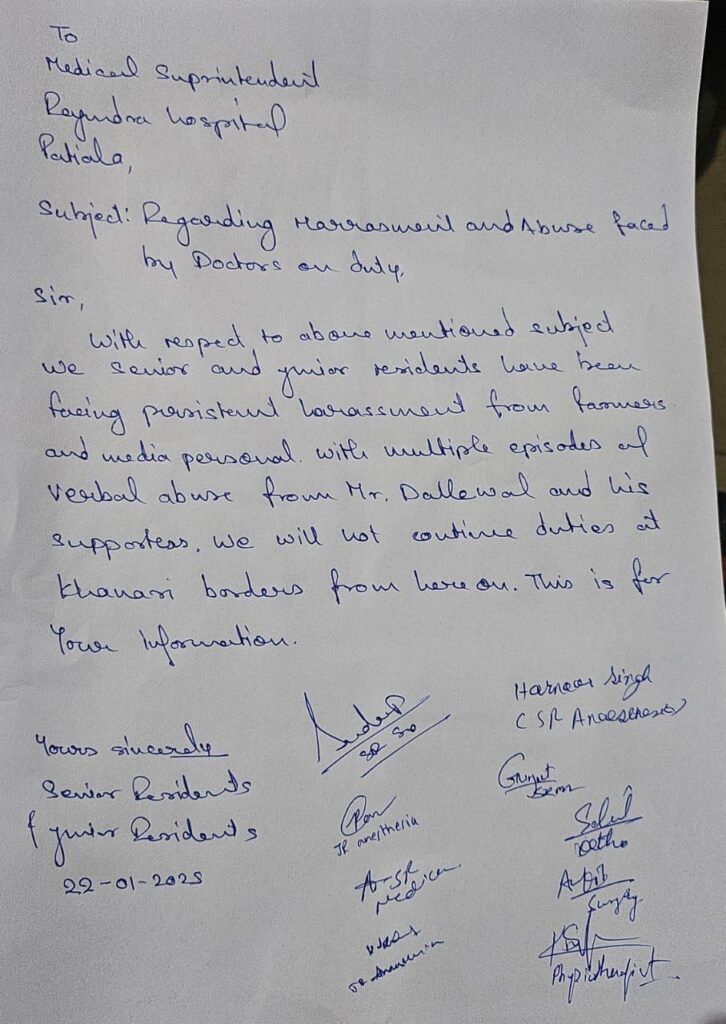 To
Medical Suprintendent
Rajindra hospital
Patiala,
Subject: Regarding Harrasment and Abuse faced
by Doctors on duty.
Sir,
With respect to above mentioned subject
we senior and junior residents have been
facing persistent harassment from farmers
and media personal. with multiple episodes of
verbal abuse from Mr. Dallewal and his
supporters. we will not continue duties at
Khanari borders from here on. This is for
Your Information.
Yours sincerely
Senior Residents
& junior Residents
22-01-2025
Harnoor Singh
(SR Anaesthesia)
JR anesthesia
A-SR
Medicine
Surgery
Physiotherapist.